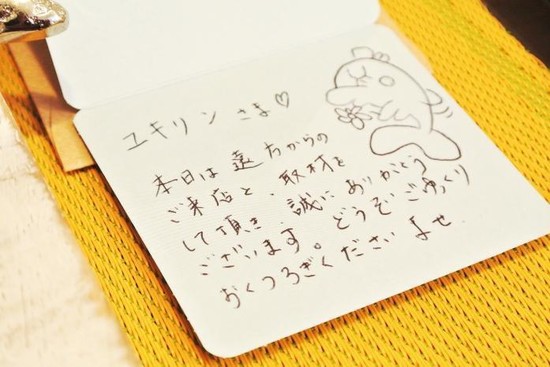 ユキリンさま♡
本日は遠方からの
ご来店と、取材を
して頂き、誠にありがとう
ございます。どうぞごゆっくり
おくつろぎくださいませ